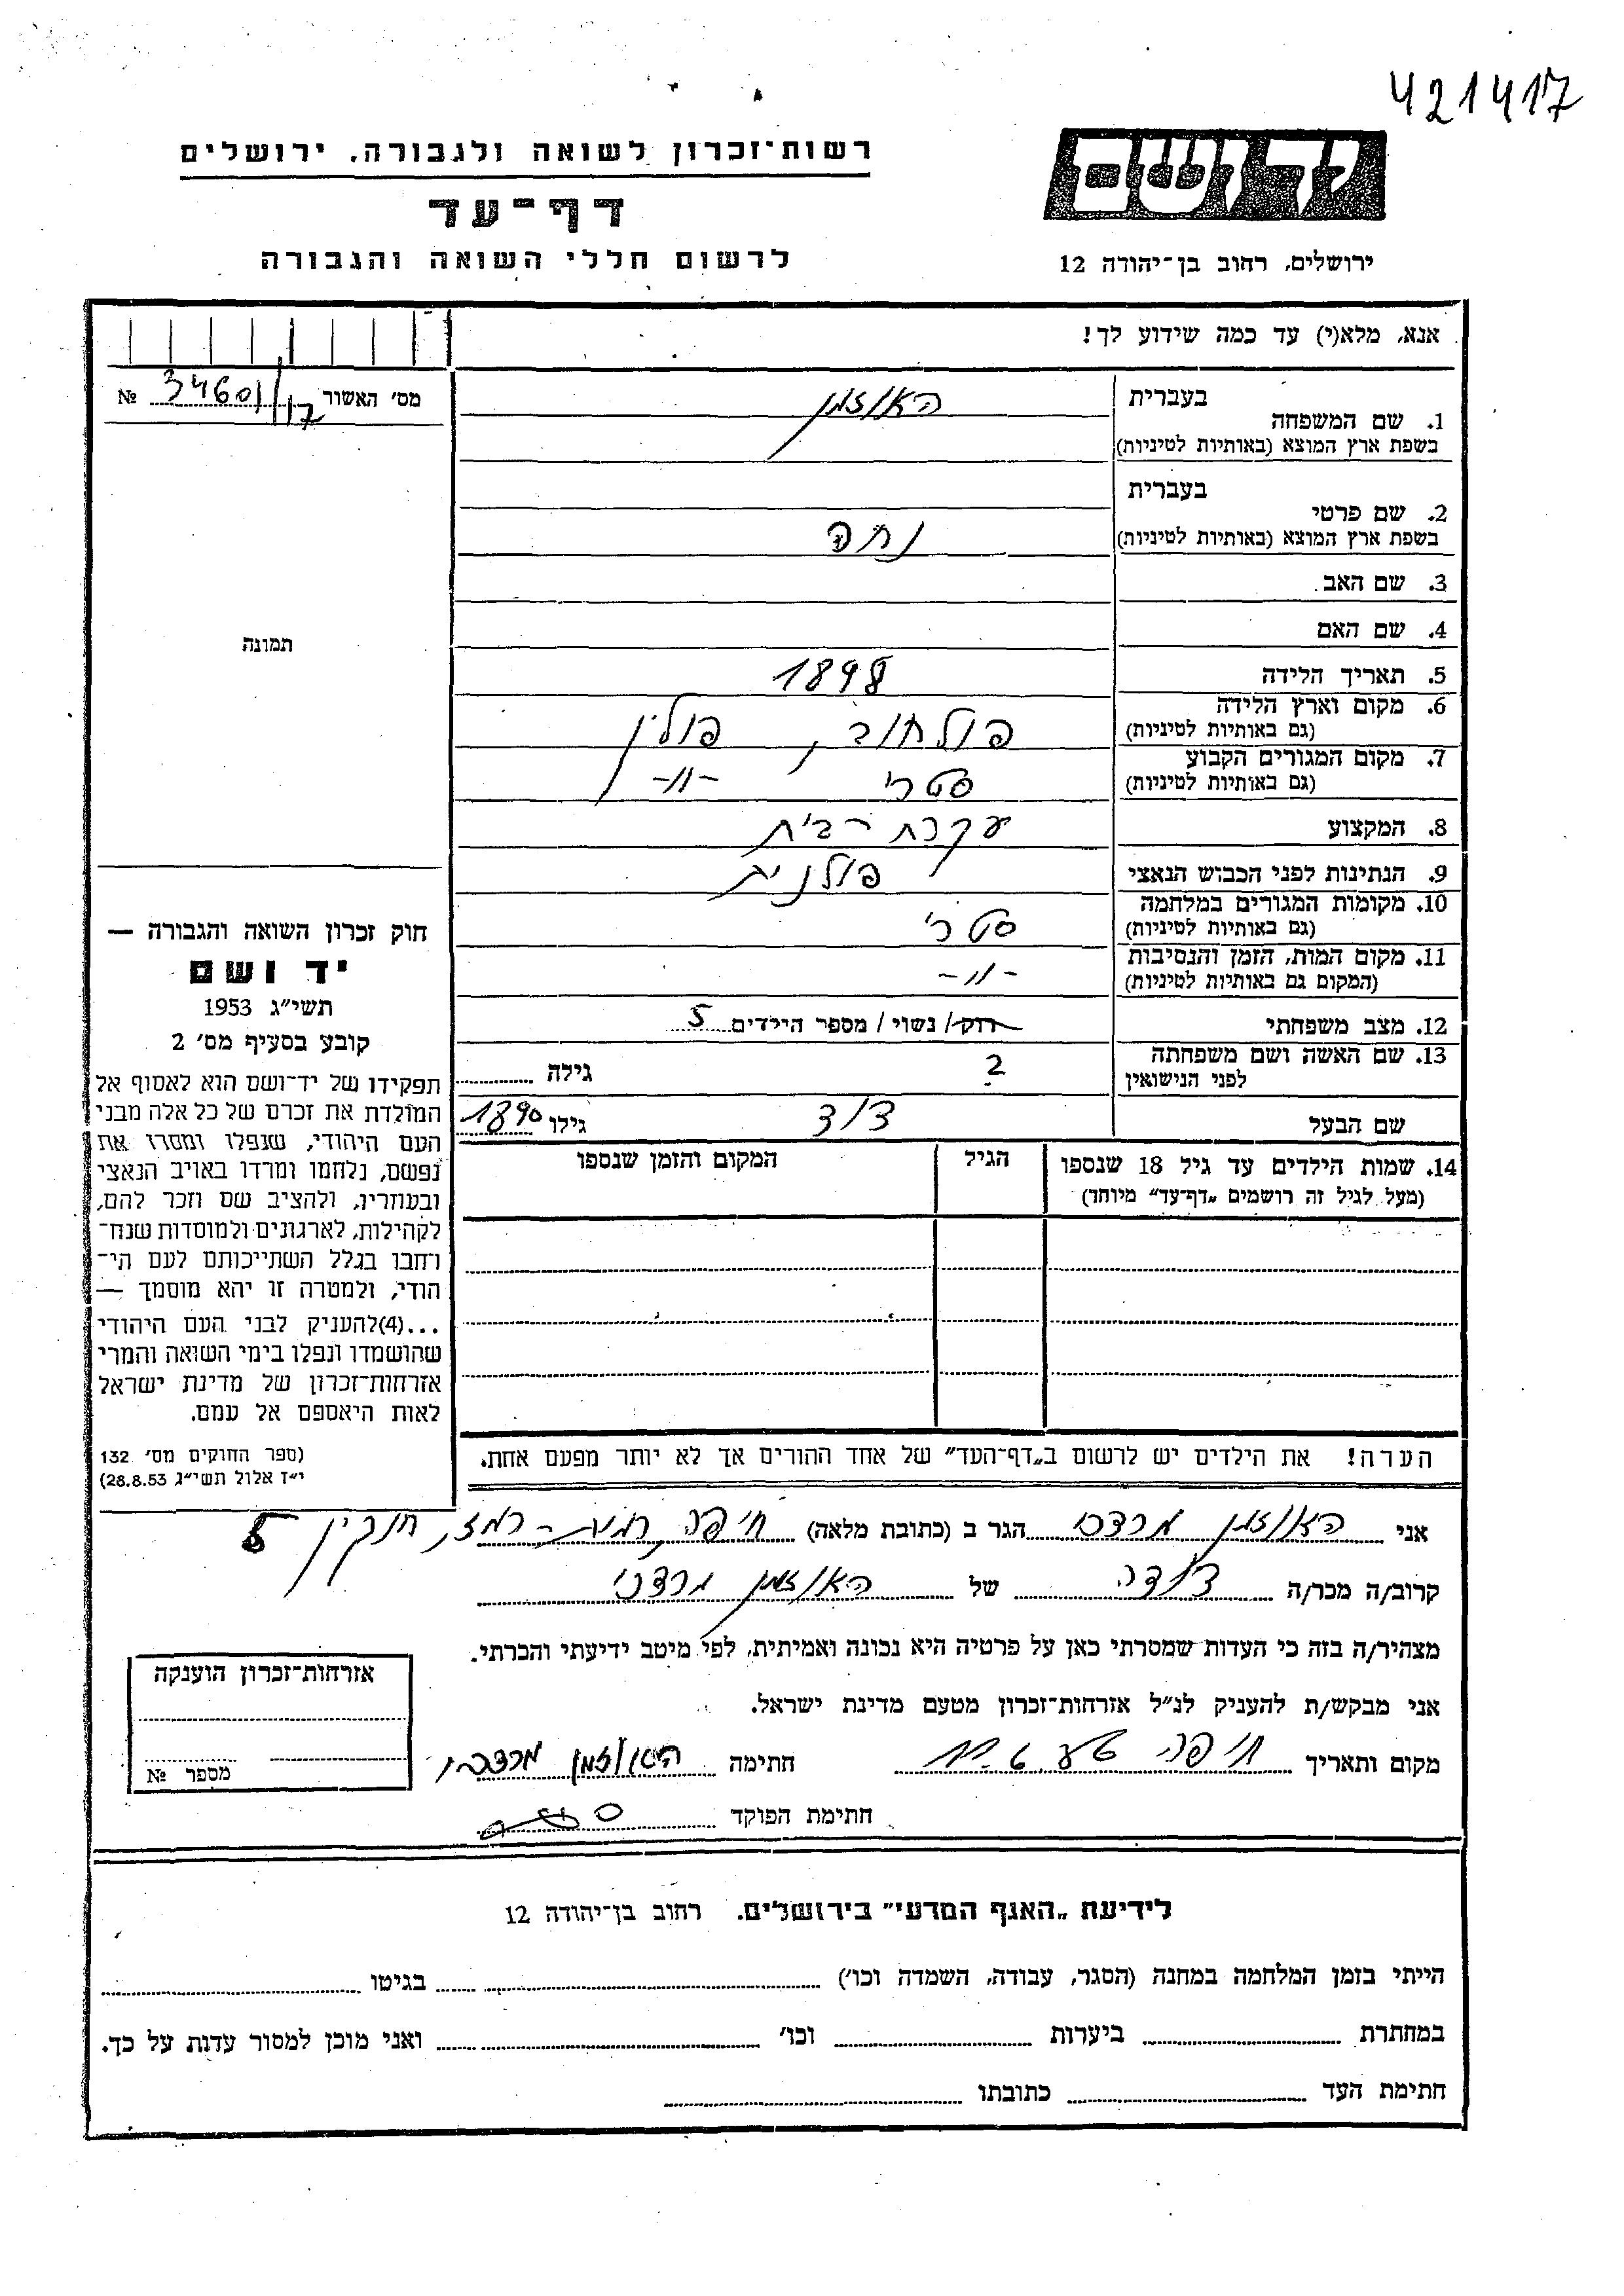 421417
רשות־זכרון לשואה ולגבורה, ירושלים
דף־עד
לרשום חללי השואה והגבורה
ידושם
ירושלים, רחוב בן־יהודה 12
אנא, מלא(י) עד כמה שידוע לך!
מס׳ האשור 34601/17 №
תמונה
1. שם המשפחה
בעברית האוזמן
בשפת ארץ המוצא (באותיות לטיניות)
2. שם פרטי
בעברית
בשפת ארץ המוצא (באותיות לטיניות) נחה
3. שם האב
4. שם האם
5. תאריך הלידה 1898
6. מקום וארץ הלידה
(גם באותיות לטיניות) פולחוב, פולין
7. מקום המגורים הקבוע
(גם באותיות לטיניות) סטרי -"-
8. המקצוע עקרת-בית
9. הנתינות לפני הכבוש הנאצי פולנית
10. מקומות המגורים במלחמה
(גם באותיות לטיניות) סטרי
11. מקום המות, הזמן והנסיבות
(המקום גם באותיות לטיניות) -"-
12. מצב משפחתי רוק/ נשוי/ מספר הילדים 5
13. שם האשה ושם משפחתה
לפני הנישואין ? גילה
שם הבעל דוד גילו 1890
14. שמות הילדים עד גיל 18 שנספו
(מעל לגיל זה רושמים „דף־עד״ מיוחד)
הגיל
המקום והזמן שנספו
חוק זכרון השואה והגבורה —
יד ושם
תשי״ג 1953
קובע בסעיף מס׳ 2
תפקידו של יד־ושם הוא לאסוף אל
המולדת את זכרם של כל אלה מבני
העם היהודי, שנפלו ומסרו את
נפשם, נלחמו ומרדו באויב הנאצי
ובעוזריו, ולהציב שם וזכר להם,
לקהילות, לארגונים ולמוסדות שנח־
רחבו בגלל השתייכותם לעם הי־
הודי, ולמטרה זו יהא מוסמך —
...(4)להעניק לבני העם היהודי
שהושמדו ונפלו בימי השואה והמרי
אזרחות־זכרון של מדינת ישראל
לאות היאספם אל עמם.
(ספר החוקים מס׳ 132
י״ז אלול תשי״ג 28.8.53)
הערה! את הילדים יש לרשום ב„דף־העד״ של אחד ההורים אך לא יותר מפעם אחת.
אני האוזמן מרדכי הגר ב (כתובת מלאה) חיפה רמת-רמז, חנקין 5
קרוב/ה מכר/ה דודה של האוזמן מרדכי
מצהיר/ה בזה כי העדות שמסרתי כאן על פרטיה היא נכונה ואמיתית, לפי מיטב ידיעתי והכרתי.
אני מבקש/ת להעניק לנ״ל אזרחות־זכרון מטעם מדינת ישראל.
מקום ותאריך חיפה חתימה האוזמן מרדכי
חתימת הפוקד
אזרחות־זכרון הוענקה
מספר №
לידיעת „האגף המדעי״ בירושלים. רחוב בן־יהודה 12
הייתי בזמן המלחמה במחנה (הסגר, עבודה, השמדה וכו׳) בגיטו
במחתרת ביערות וכו׳ ואני מוכן למסור עדות על כך.
חתימת העד כתובתו